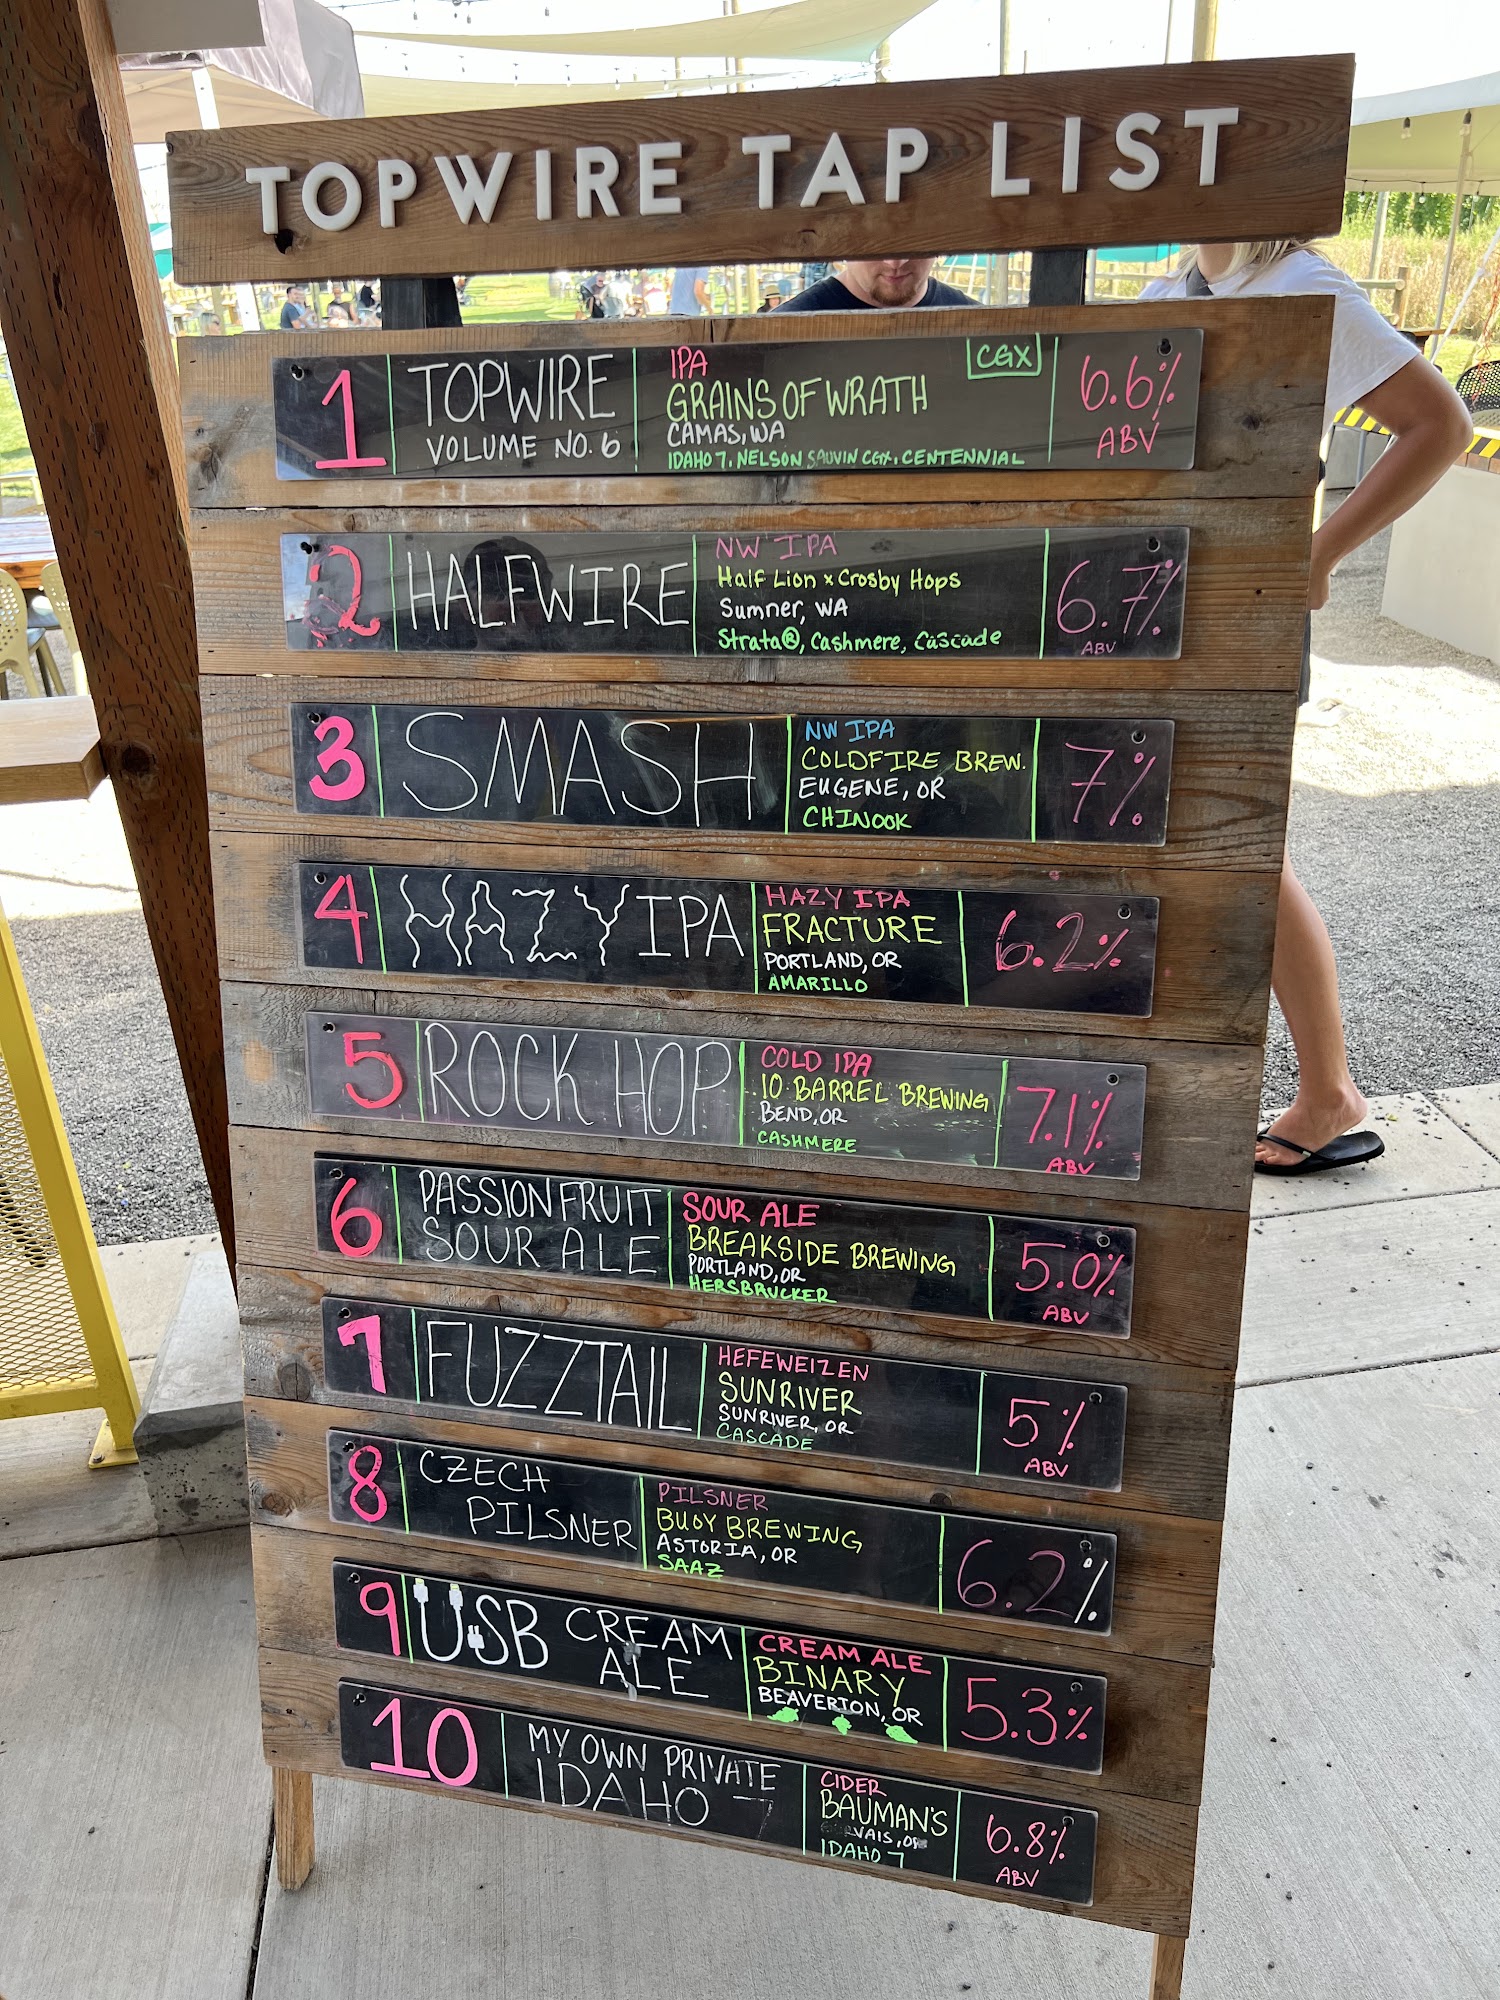 TOPWIRE TAP LIST
1
TOPWIRE
VOLUME NO. 6
IPA
CGX
GRAINS OF WRATH
CAMAS, WA
IDAHO 7, NELSON SAUVIN CGX, CENTENNIAL
6.6%
ABV
2
HALFWIRE
NW IPA
Half Lion x Crosby Hops
Sumner, WA
Strata®, Cashmere, Cascade
6.7%
ABV
3
SMASH
NW IPA
COLDFIRE BREW.
EUGENE, OR
CHINOOK
7%
4
HAZY IPA
HAZY IPA
FRACTURE
PORTLAND, OR
AMARILLO
6.2%
5
ROCK HOP
COLD IPA
10 BARREL BREWING
BEND, OR
CASHMERE
7.1%
ABV
6
PASSIONFRUIT
SOUR ALE
SOUR ALE
BREAKSIDE BREWING
PORTLAND, OR
HERSBRUCKER
5.0%
ABV
7
FUZZTAIL
HEFEWEIZEN
SUNRIVER
SUNRIVER, OR
CASCADE
5%
ABV
8
CZECH
PILSNER
PILSNER
BUOY BREWING
ASTORIA, OR
SAAZ
6.2%
9
USB CREAM
ALE
CREAM ALE
BINARY
BEAVERTON, OR
5.3%
10
MY OWN PRIVATE
IDAHO 7
CIDER
BAUMAN'S
GERVAIS, OR
IDAHO 7
6.8%
ABV